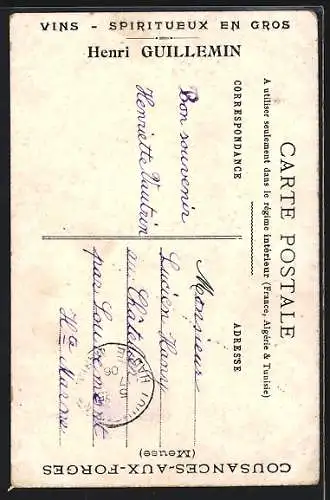 VINS - SPIRITUEUX EN GROS
Henri GUILLEMIN
CARTE POSTALE
A utiliser seulement dans le régime intérieur (France, Algérie & Tunisie)
CORRESPONDANCE
ADRESSE
Bon souvenir
Henriette Vautrin
Monsieur
Lucien Hany
au Châtelier
par Louvemont
Hte Marne
COUSANCES-AUX-FORGES
(Meuse)